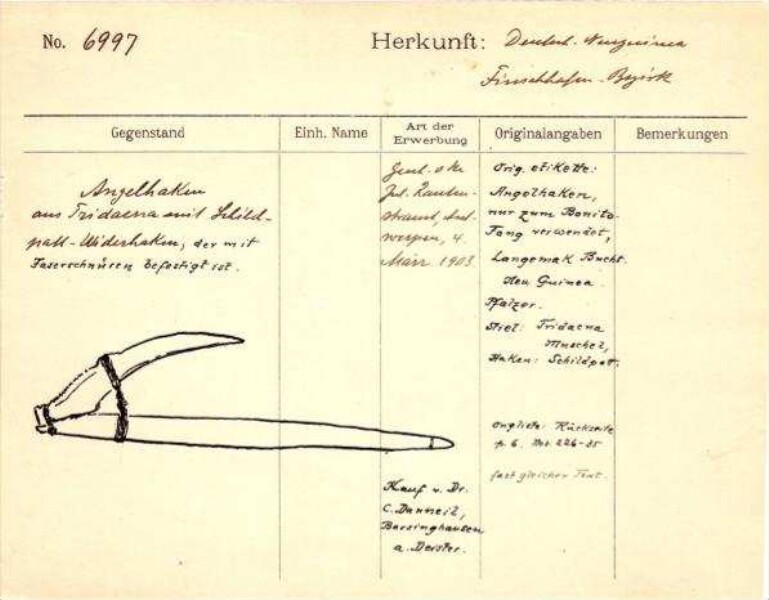 No. 6997
Herkunft: Deutsch. Neuguinea
Finschhafen-Bezirk
Gegenstand
Einh. Name
Art der
Erwerbung
Originalangaben
Bemerkungen
Angelhaken
aus Tridacna mit Schild-
patt-Widerhaken, der mit
Faserschnüren befestigt ist.
Jul. Rauten-
strauch, Ant-
werpen, 4.
März 1903.
Kauf v. Dr.
C. Danneil,
Barsinghausen
a. Deister.
Orig. etikette:
Angelhaken,
nur zum Bonito-
Fang verwendet,
Langemak Bucht.
Neu Guinea.
Pfalzer.
Stiel: Tridacna
Muschel,
Haken: Schildpatt.
Rückseite
p. 6. No. 226-35
fast gleicher Text.